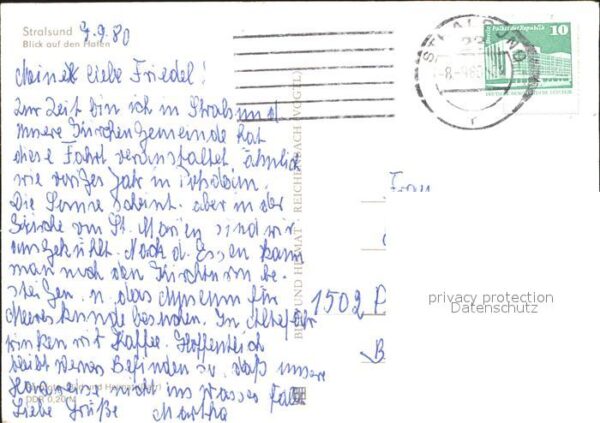 Stralsund
Blick auf den Hafen
9.9.80
Meine liebe Friedel!
Zur Zeit bin ich in Stralsund
Unsere Kirchengemeinde hat
diese Fahrt veranstaltet ähnlich
wie voriges Jahr in Potsdam.
Die Sonne scheint. aber in der
Kirche von St. Marien sind wir
ausgekühlt. Nach d. Essen kann
man noch den Kirchturm be-
steigen u. das Museum für
Meereskunde besuchen. In Altefähr
winken wir Kaffee. Hoffentlich
bleibt Befinden so, daß unsere
nicht ins Wasser fällt
Liebe Grüße Martha
DDR 0,20 M
BILD UND HEIMAT REICHENBACH (VOGTL)
STRALSUND
10
Palast der Republik
Frau
1502 P
B
privacy protection
Datenschutz